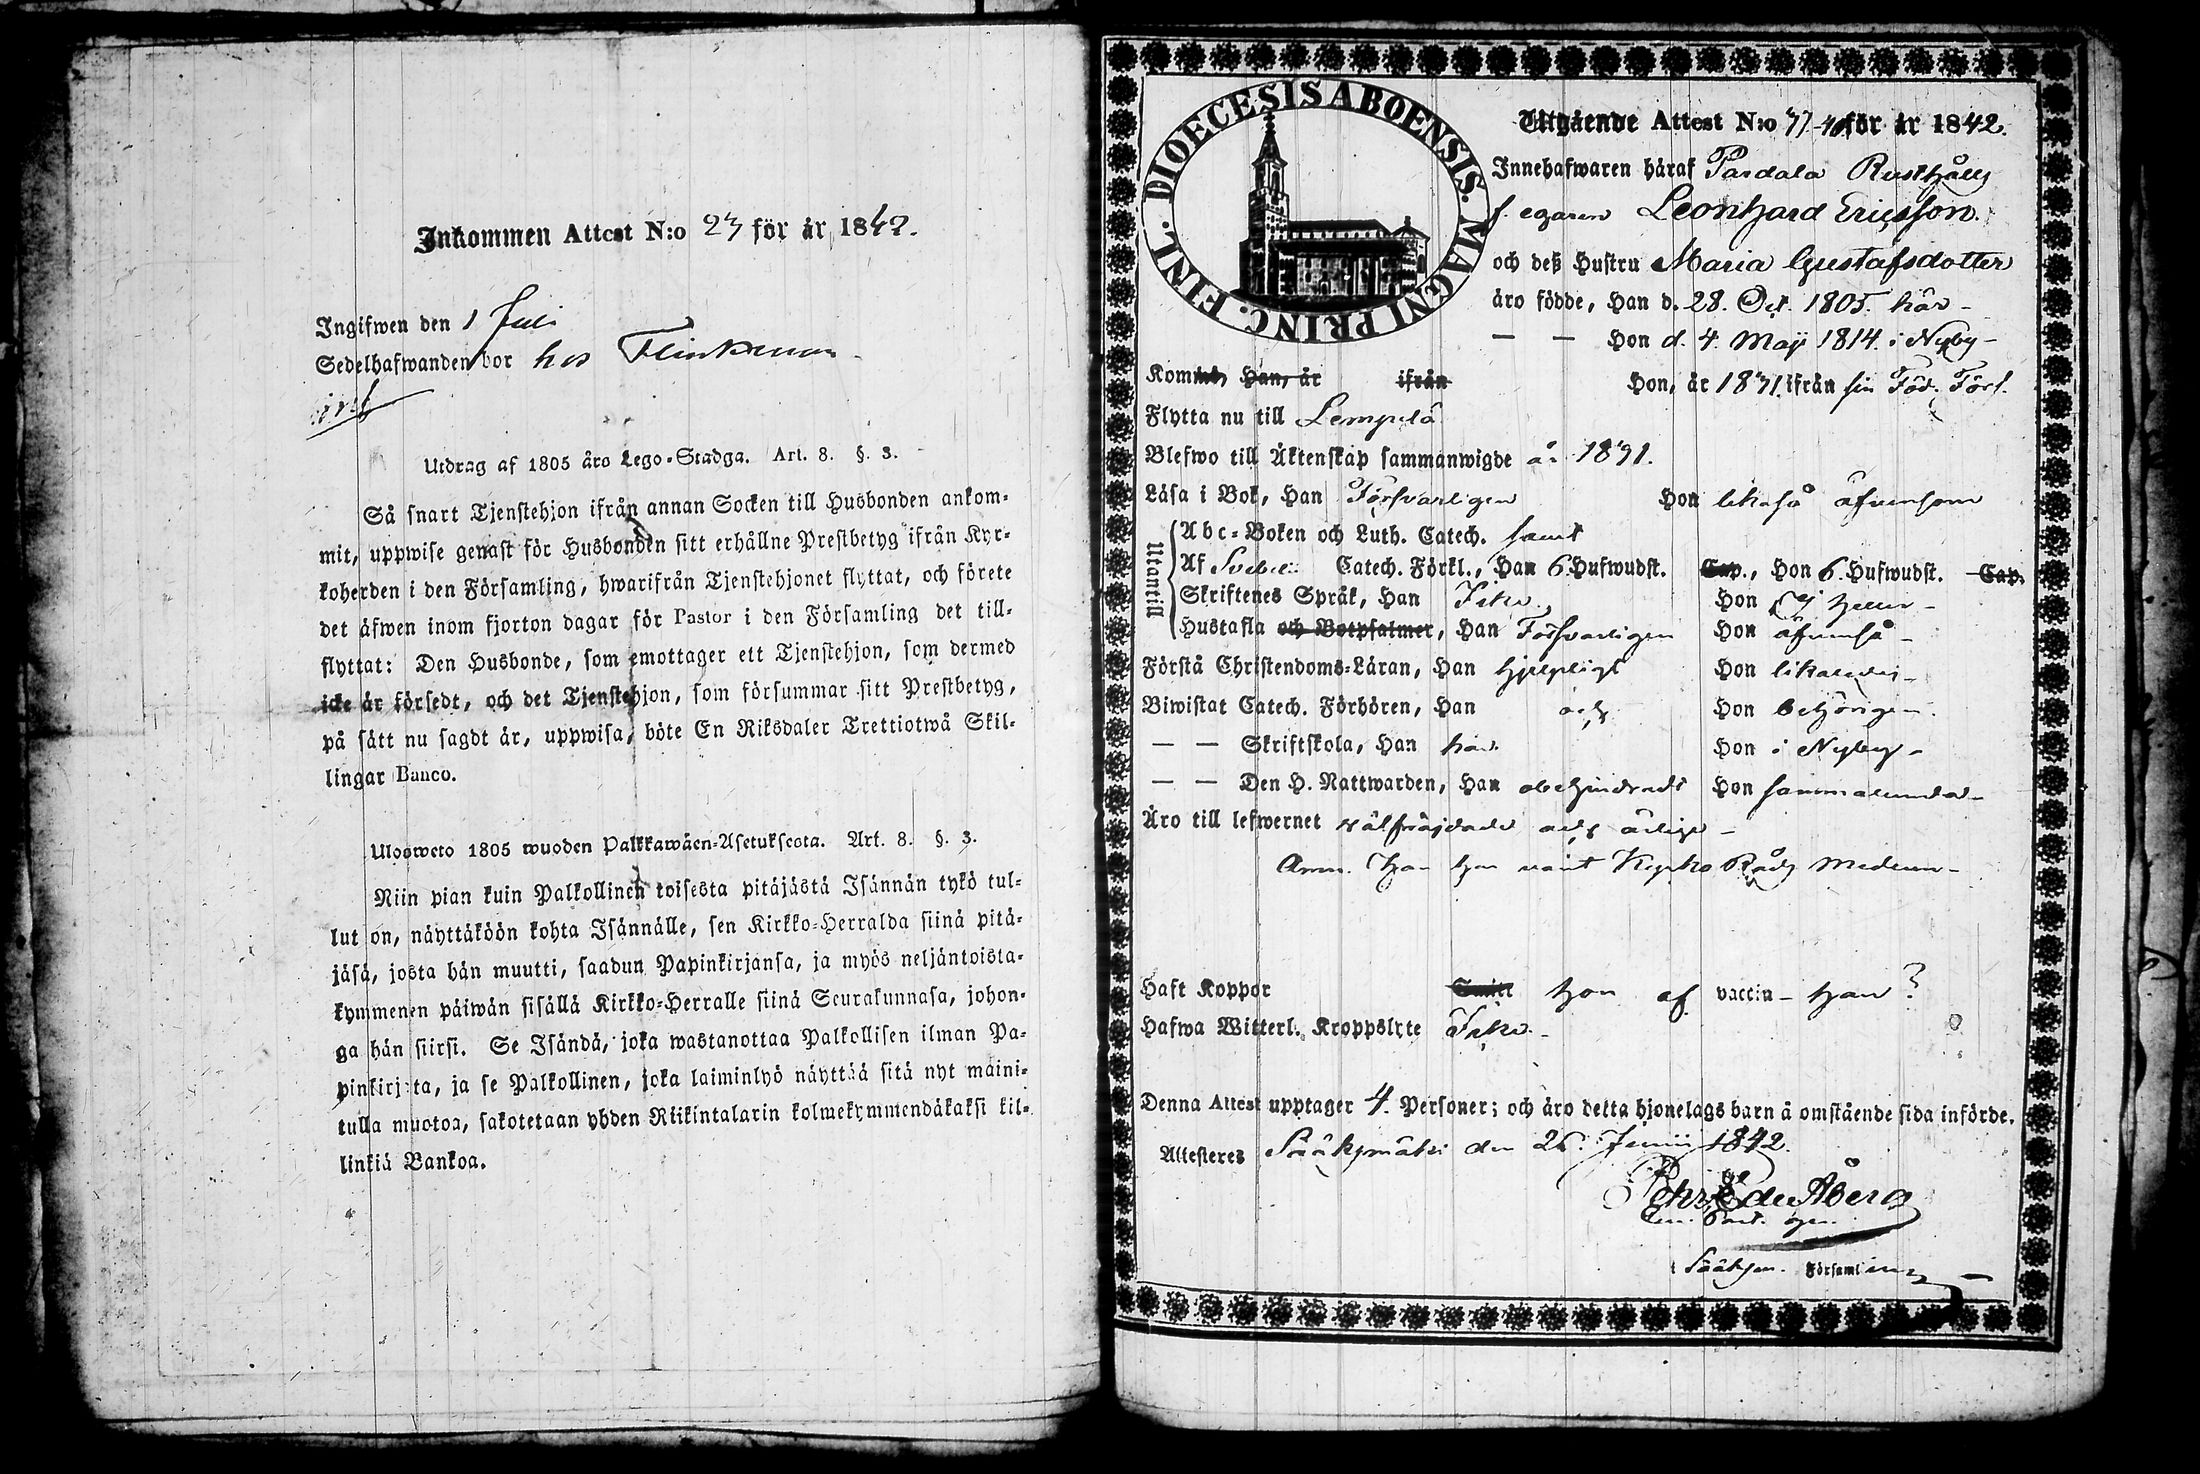 Inkommen Attest N:o 23 för år 1842.
Ingifwen den 1 Juli
Sedelhafwanden bor hos
Utdrag af 1805 års Lego-Stadga. Art. 8. §. 3.
Så snart Tjenstehjon ifrån annan Socken till Husbonden ankom-
mit, uppwise genast för Husbonden sitt erhållne Prestbetyg ifrån Kyr-
koherden i den Församling, hwarifrån Tjenstehjonet flyttat, och förete
det äfwen inom fjorton dagar för Pastor i den Församling det till-
flyttat: Den Husbonde, som emottager ett Tjenstehjon, som dermed
icke är försedt, och det Tjenstehjon, som försummar sitt Prestbetyg,
på sätt nu sagdt är, uppwisa, böte En Riksdaler Trettiotwå Skil-
lingar Banco.
Ulosweto 1805 wuoden Palkkawäen-Asetuksesta. Art. 8. §. 3.
Niin pian kuin Palkollinen toisesta pitäjästä Isännän tykö tul-
lut on, näyttäköön kohta Isännälle, sen Kirkko-Herralda siinä pitä-
jäsä, josta hän muutti, saadun Papinkirjansa, ja myös neljäntoista-
kymmenen päiwän sisällä Kirkko-Herralle siinä Seurakunnasa, johon-
ga hän siirsi. Se Isändä, joka wastanottaa Palkollisen ilman Pa-
pinkirjata, ja se Palkollinen, joka laiminlyö näyttää sitä nyt maini-
tulla muotoa, sakotetaan yhden Riikintalarin kolmekymmendäkaksi kil-
linkiä Bankoa.
DIOECESIS ABOENSIS. MAGNI PRINC. FINL.
Utgående Attest N:o för år 1842.
Innehafwaren häraf Pardala Rusthålls
f. egaren Leonhard Ericsson
och deß Hustru Maria Gustafsdotter
äro födde, Han d. 28. Oct. 1805. här –
– – Hon d. 4. Maji 1814. i Nyby –
Kommit, Han, år ifrån Hon, år 1831. ifrån sin Föd. Förs.
Flytta nu till Lempelä
Blefwo till Äktenskap sammanwigde år 1831.
Läsa i Bok, Han Försvarligen Hon likaså äfvensom
Utantill
Abc-Boken och Luth. Catech. samt
Af Svebel: Catech. Förkl., Han 6 Hufwudst. Cap., Hon 6. Hufwudst. Cap.
Skriftenes Språk, Han Icke. Hon Ej heller –
Hustafla och Botpsalmer, Han Försvarligen Hon äfvenså –
Förstå Christendoms-Läran, Han hjelpligt Hon likaledes –
Biwistat Catech. Förhören, Han och Hon behörigen.
– – Skriftskola, Han här. Hon i Nyby –
– – Den H. Nattwarden, Han obehindradt Hon sammalunda –
Äro till lefwernet välfräjdade och ärlige –
Anm. Han har varit Kyrko Råds Medlem –
Haft Koppor Smitt Hon af vaccin – Han ?
Hafwa Witterl. Kroppslyte Icke. –
Denna Attest upptager 4. Personer; och äro detta hjonelags barn å omstående sida införde.
Attesteres Sääksmäki den 26. Junii 1842.
Pehr Edv Åberg
Sääksm. Församling